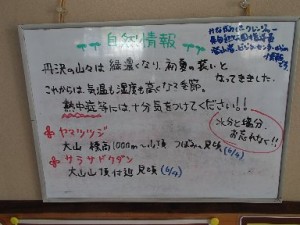 自然情報
丹沢の山々は緑濃くなり、初夏の装いと
なってきました。
これからは、気温も湿度も高くなる季節。
熱中症等には十分気をつけてください!!
水分と塩分、
お忘れなく!!
ヤマツツジ
大山 標高1000m~山頂 つぼみ~見頃
サラサドウダン
大山山頂付近 見頃